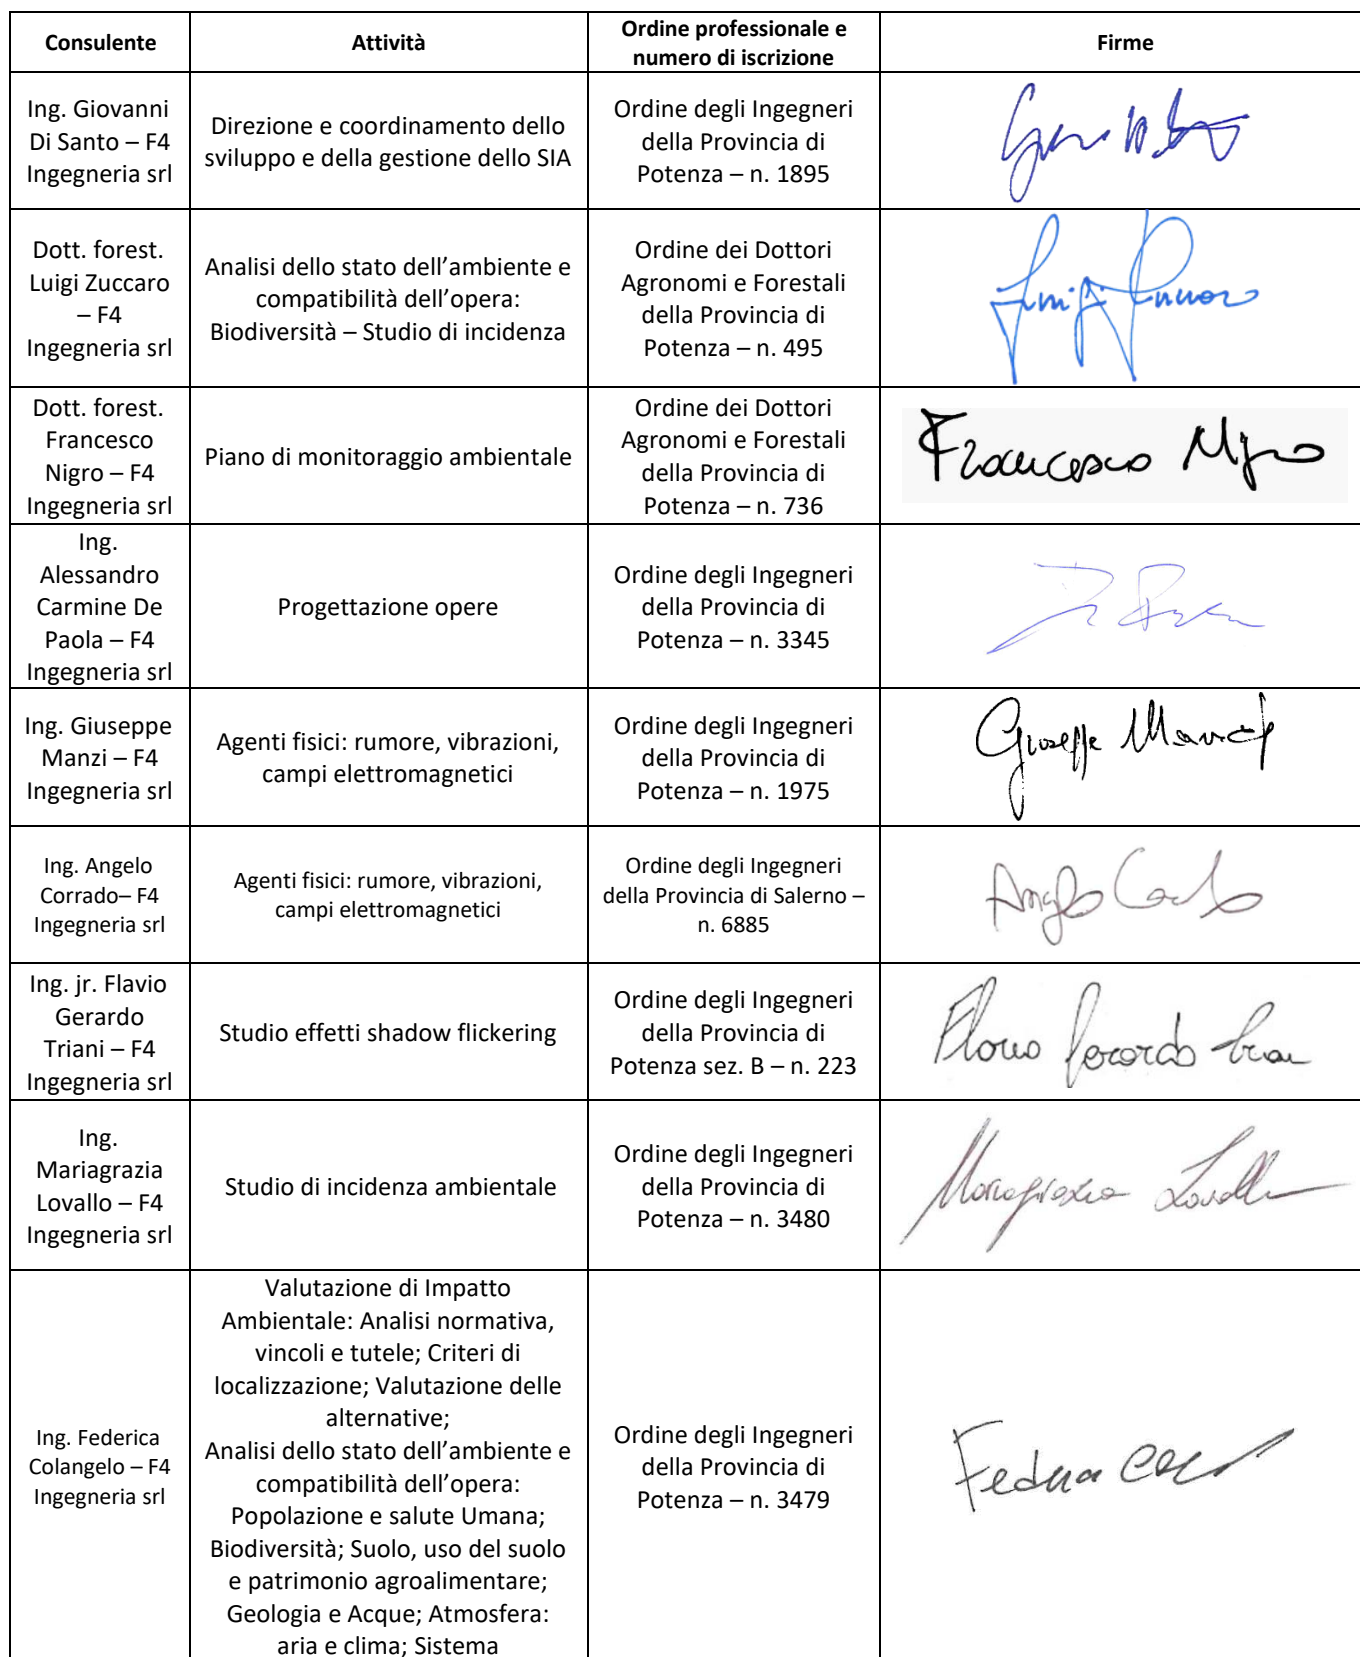 Consulente
Attività
Ordine professionale e
numero di iscrizione
Firme
Ing. Giovanni
Di Santo – F4
Ingegneria srl
Direzione e coordinamento dello
sviluppo e della gestione dello SIA
Ordine degli Ingegneri
della Provincia di
Potenza – n. 1895
Dott. forest.
Luigi Zuccaro
– F4
Ingegneria srl
Analisi dello stato dell’ambiente e
compatibilità dell’opera:
Biodiversità – Studio di incidenza
Ordine dei Dottori
Agronomi e Forestali
della Provincia di
Potenza – n. 495
Dott. forest.
Francesco
Nigro – F4
Ingegneria srl
Piano di monitoraggio ambientale
Ordine dei Dottori
Agronomi e Forestali
della Provincia di
Potenza – n. 736
Francesco Nigro
Ing.
Alessandro
Carmine De
Paola – F4
Ingegneria srl
Progettazione opere
Ordine degli Ingegneri
della Provincia di
Potenza – n. 3345
Ing. Giuseppe
Manzi – F4
Ingegneria srl
Agenti fisici: rumore, vibrazioni,
campi elettromagnetici
Ordine degli Ingegneri
della Provincia di
Potenza – n. 1975
Giuseppe Manzi
Ing. Angelo
Corrado– F4
Ingegneria srl
Agenti fisici: rumore, vibrazioni,
campi elettromagnetici
Ordine degli Ingegneri
della Provincia di Salerno –
n. 6885
Angelo Corrado
Ing. jr. Flavio
Gerardo
Triani – F4
Ingegneria srl
Studio effetti shadow flickering
Ordine degli Ingegneri
della Provincia di
Potenza sez. B – n. 223
Flavio Gerardo Triani
Ing.
Mariagrazia
Lovallo – F4
Ingegneria srl
Studio di incidenza ambientale
Ordine degli Ingegneri
della Provincia di
Potenza – n. 3480
Mariagrazia Lovallo
Ing. Federica
Colangelo – F4
Ingegneria srl
Valutazione di Impatto
Ambientale: Analisi normativa,
vincoli e tutele; Criteri di
localizzazione; Valutazione delle
alternative;
Analisi dello stato dell’ambiente e
compatibilità dell’opera:
Popolazione e salute Umana;
Biodiversità; Suolo, uso del suolo
e patrimonio agroalimentare;
Geologia e Acque; Atmosfera:
aria e clima; Sistema
Ordine degli Ingegneri
della Provincia di
Potenza – n. 3479